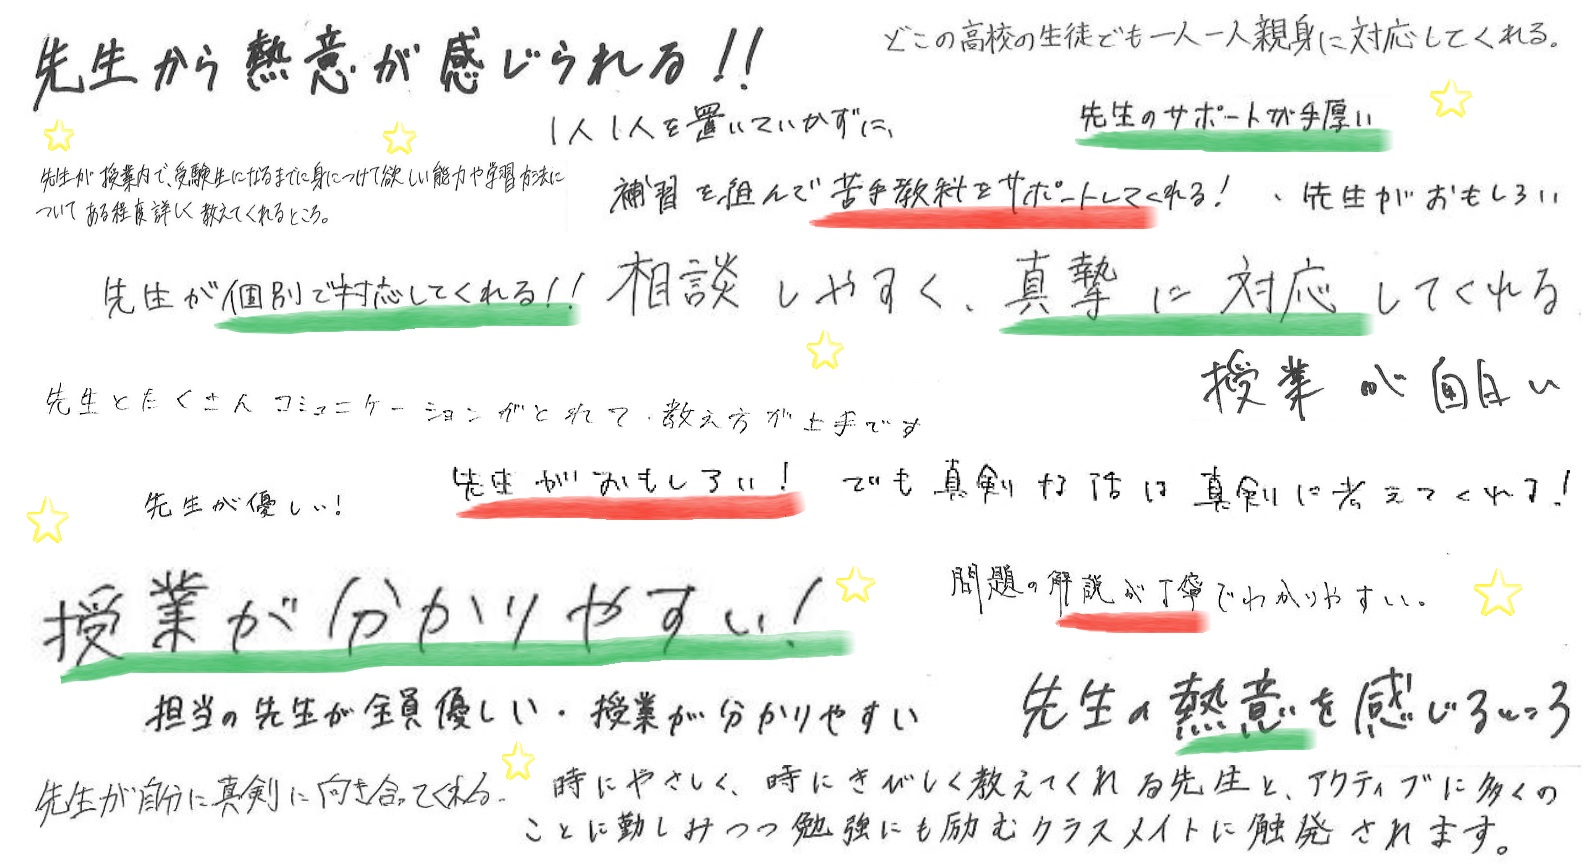 先生から熱意が感じられる!!
どこの高校の生徒でも一人一人親身に対応してくれる。
1人1人を置いていかずに、
補習を組んで苦手教科をサポートしてくれる!
先生のサポートが手厚い
先生が授業内で、受験生になるまでに身につけて欲しい能力や学習方法に
ついてある程度詳しく教えてくれるところ。
・先生がおもしろい
先生が個別で対応してくれる!!
相談しやすく、真摯に対応してくれる
授業が面白い
先生とたくさんコミュニケーションがとれて、教え方が上手です
先生が優しい!
先生がおもしろい! でも真剣な話は真剣に考えてくれる!
授業が分かりやすい!
問題の解説が丁寧でわかりやすい。
担当の先生が全員優しい・授業が分かりやすい
先生の熱意を感じるところ
先生が自分に真剣に向き合ってくれる。
時にやさしく、時にきびしく教えてくれる先生と、アクティブに多くの
ことに勤しみつつ勉強にも励むクラスメイトに触発されます。